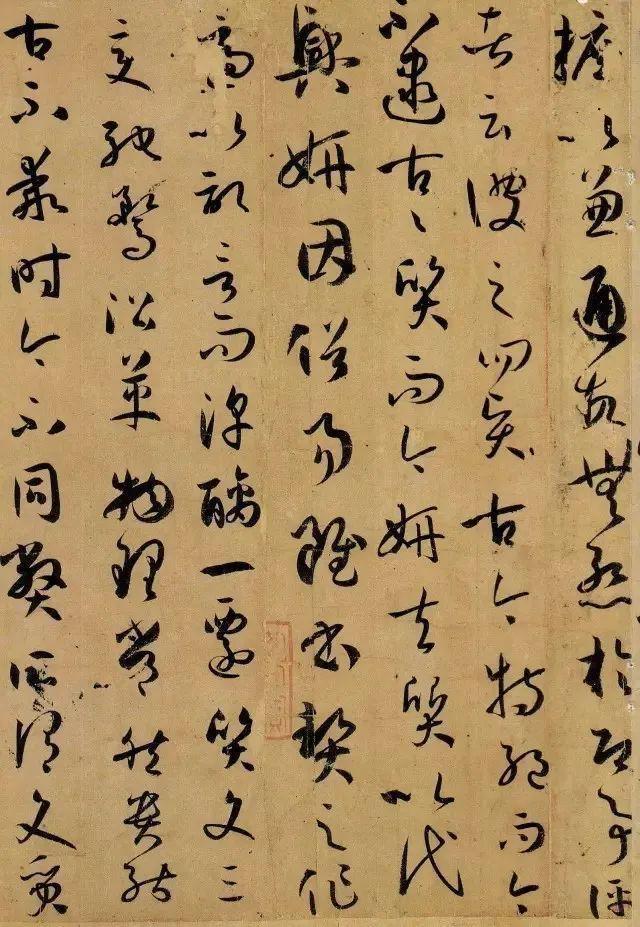 推以兼通故無慙於即事評
者云彼之四賢古今特絕而今
不逮古々質而今妍夫質以代
興妍因俗易雖書契之作
適以記言而淳醨一遷質文三
變馳騖沿革物理常然貴能
古不乖時今不同弊所謂文質